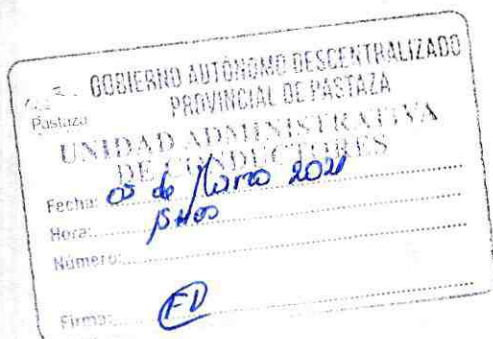 GOBIERNO AUTÓNOMO DESCENTRALIZADO
PROVINCIAL DE PASTAZA
Pastaza
UNIDAD ADMINISTRATIVA
DE CONDUCTORES
Fecha: 05 de Marzo 2021
Hora: 15H00
Número:
Firma: FD